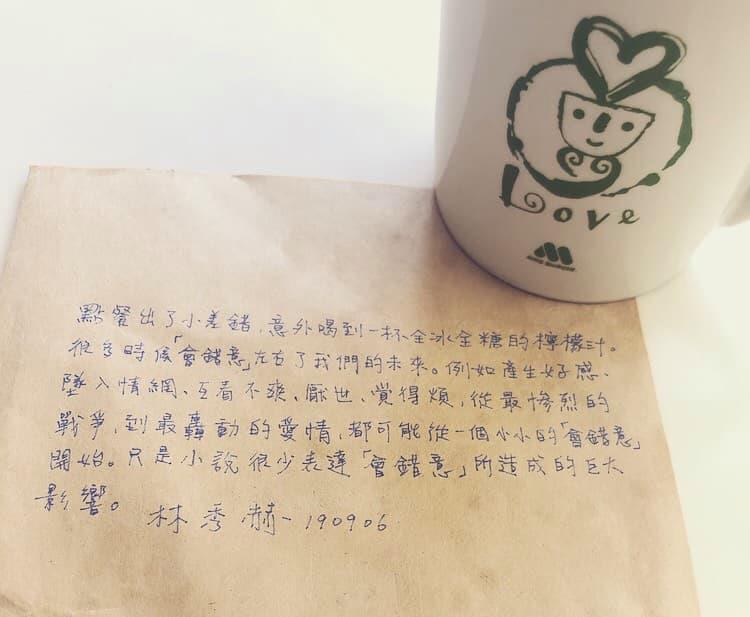 Love
MOS BURGER
點餐出了小差錯，意外喝到一杯全冰全糖的檸檬汁。
很多時候「會錯意」左右了我們的未來。例如產生好感、
墜入情網、互看不爽、厭世、覺得煩，從最慘烈的
戰爭，到最轟動的愛情，都可能從一個小小的「會錯意」
開始。只是小說很少表達「會錯意」所造成的巨大
影響。 林秀赫-190906